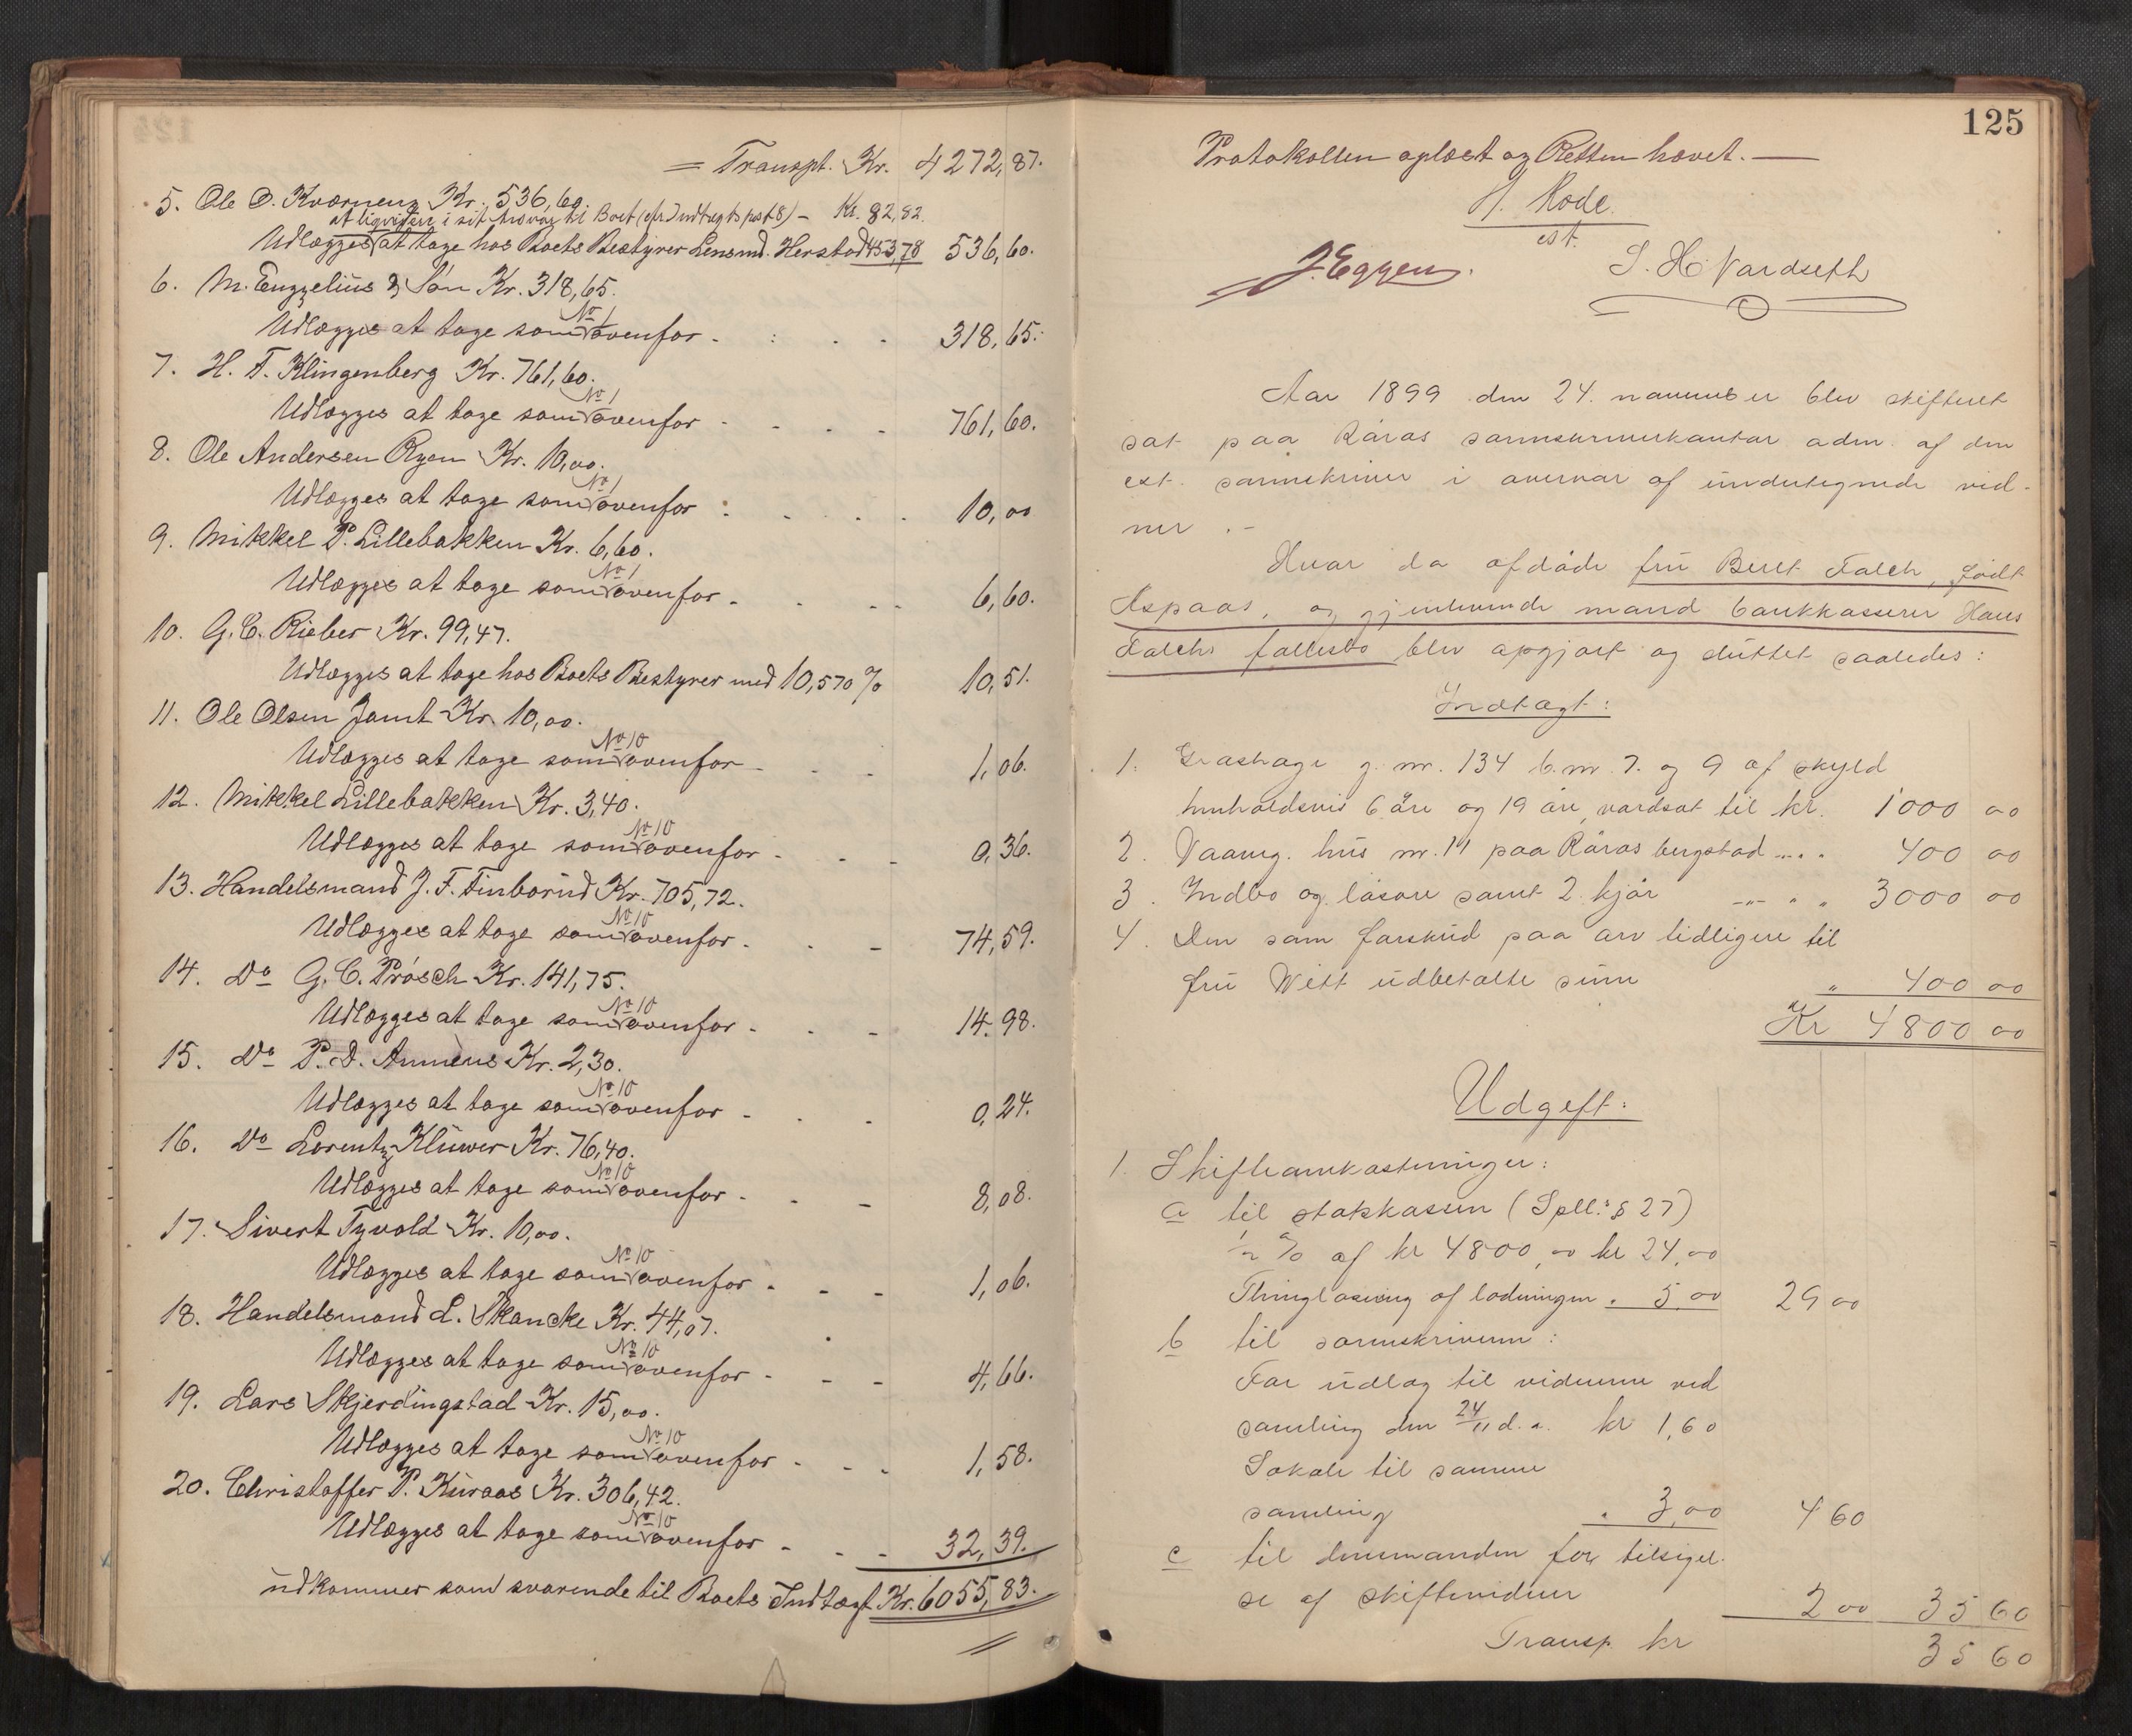 = Transpt. Kr. 4272,87.
5. Ole O. Kværneng Kr. 536,60.
at liqvidere i sit Ansvar til Boet (cfr. Indtægts post 8) - Kr. 82,82.
Udlægges at tage hos Boets Bestyrer Lensmd. Herstad 453,78 536,60.
6. M. Engzelius & Søn Kr. 318,65.
Udlægges at tage som No 1 ovenfor - 318,65.
7. H. F. Klingenberg Kr. 761,60.
Udlægges at tage som No 1 ovenfor - 761,60.
8. Ole Andersen Ryen Kr. 10,00.
Udlægges at tage som No 1 ovenfor - 10,00
9. Mikkel P. Lillebakken Kr. 6,60.
Udlægges at tage som No 1 ovenfor - 6,60.
10. G. C. Rieber Kr. 99,47.
Udlægges at tage hos Boets Bestyrer med 10,570 % 10,51.
11. Ole Olsen Jamt Kr. 10,00.
Udlægges at tage som No 10 ovenfor - 1,06.
12. Mikkel Lillebakken Kr. 3,40.
Udlægges at tage som No 10 ovenfor - 0,36.
13. Handelsmand J. F. Finborud Kr. 705,72.
Udlægges at tage som No 10 ovenfor - 74,59.
14. Do G. C. Prösch Kr. 141,75.
Udlægges at tage som No 10 ovenfor - 14,98.
15. Do P. D. Aunèus Kr. 2,30.
Udlægges at tage som No 10 ovenfor - 0,24.
16. Do Lorentz Klüwer Kr. 76,40.
Udlægges at tage som No 10 ovenfor - 8,08.
17. Sivert Tyvold Kr. 10,00.
Udlægges at tage som No 10 ovenfor - 1,06.
18. Handelsmand L. Skancke Kr. 44,07.
Udlægges at tage som No 10 ovenfor - 4,66.
19. Lars Skjerdingstad Kr. 15,00.
Udlægges at tage som No 10 ovenfor - 1,58.
20. Christoffer P. Kuraas Kr. 306,42.
Udlægges at tage som No 10 ovenfor - 32,39.
udkommer som svarende til Boets Indtægt Kr. 6055,83.
125
Protokollen oplæst og Retten hævet. —
H. Rode
cst.
J. Eggen. S. H. Vardseth
Aar 1899 den 24. november blev skifteret
sat paa Røros sorenskriverkontor adm. af den
cst. sorenskriver i overvær af undertegnede vid-
ner. -
Hvor da afdøde fru Beret Falch, født
Aspaas, og gjenlevende mand bankkasserer Hans
Falchs fællesbo blev opgjort og sluttet saaledes:
Indtægt:
1. Græshage g. nr. 134 b. nr. 7. og 9 af skyld
henholdsvis 6 øre og 19 øre, værdsat til kr. 1000 00
2. Vaaning. hus nr. 11 paa Røros bergstad -"- " 400 00
3. Indbo og løsøre samt 2 kjør -"- " " 3000 00
4. Den som forskud paa arv tidligere til
fru Witt udbetalte sum " 400 00
Kr 4800 00
Udgift:
1. Skifteomkostninger:
a til statskassen (Spll. § 27)
½ % af kr 4800,00 kr 24,00
Thinglæsning af lodningen " 5,00 29 00
b til sorenskriveren:
For udlæg til vidnerne ved
samling den 24/11 d. a. kr 1,60
Lokale til samme
samling " 3,00 4 60
c til lensmanden for tilsigel-
se af skiftevidner 2 00 35 60
Transp. kr 35 60